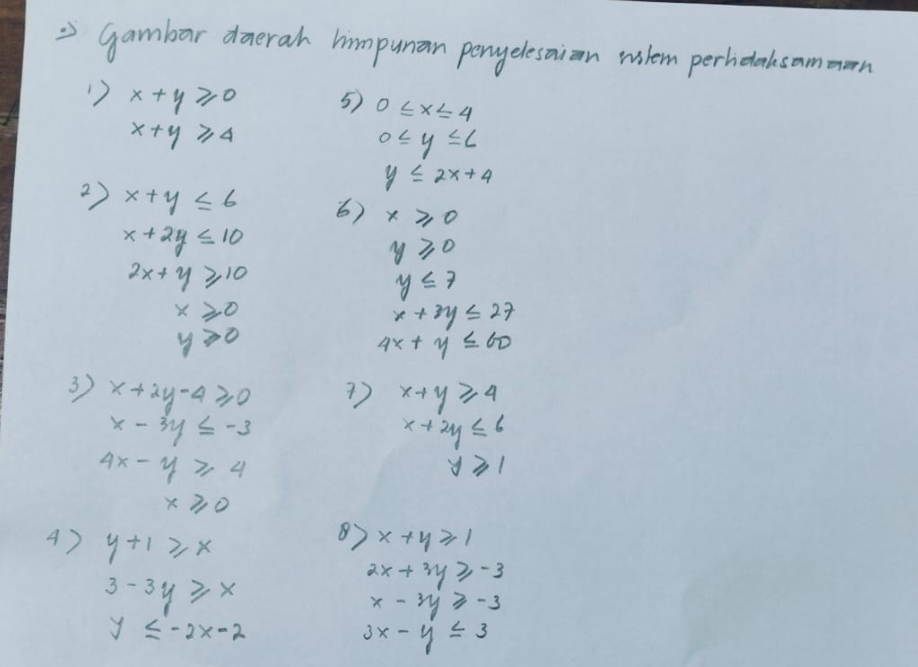 Gambar daerah himpunan penyelesaian sistem pertidaksamaan
1) x + y ≥ 0
x + y ≥ 4
2) x + y ≤ 6
x + 2y ≤ 10
2x + y ≥ 10
x ≥ 0
y ≥ 0
3) x + 2y - 4 ≥ 0
x - 3y ≤ -3
4x - y ≥ 4
x ≥ 0
4) y + 1 ≥ x
3 - 3y ≥ x
y ≤ -2x - 2
5) 0 ≤ x ≤ 4
0 ≤ y ≤ 6
y ≤ 2x + 4
6) x ≥ 0
y ≥ 0
y ≤ 7
x + 3y ≤ 27
4x + y ≤ 60
7) x + y ≥ 4
x + 2y ≤ 6
y ≥ 1
8) x + y ≥ 1
2x + 3y ≥ -3
x - 3y ≥ -3
3x - y ≤ 3